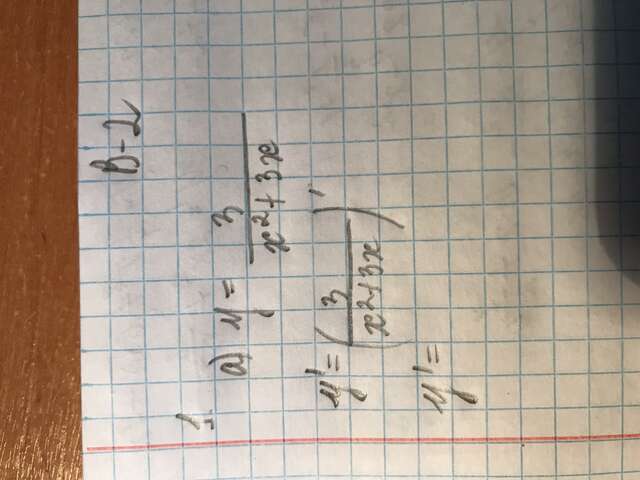 В-2
1.
а) y = 3/(x²+3x)
y' = (3/(x²+3x))'
y' =